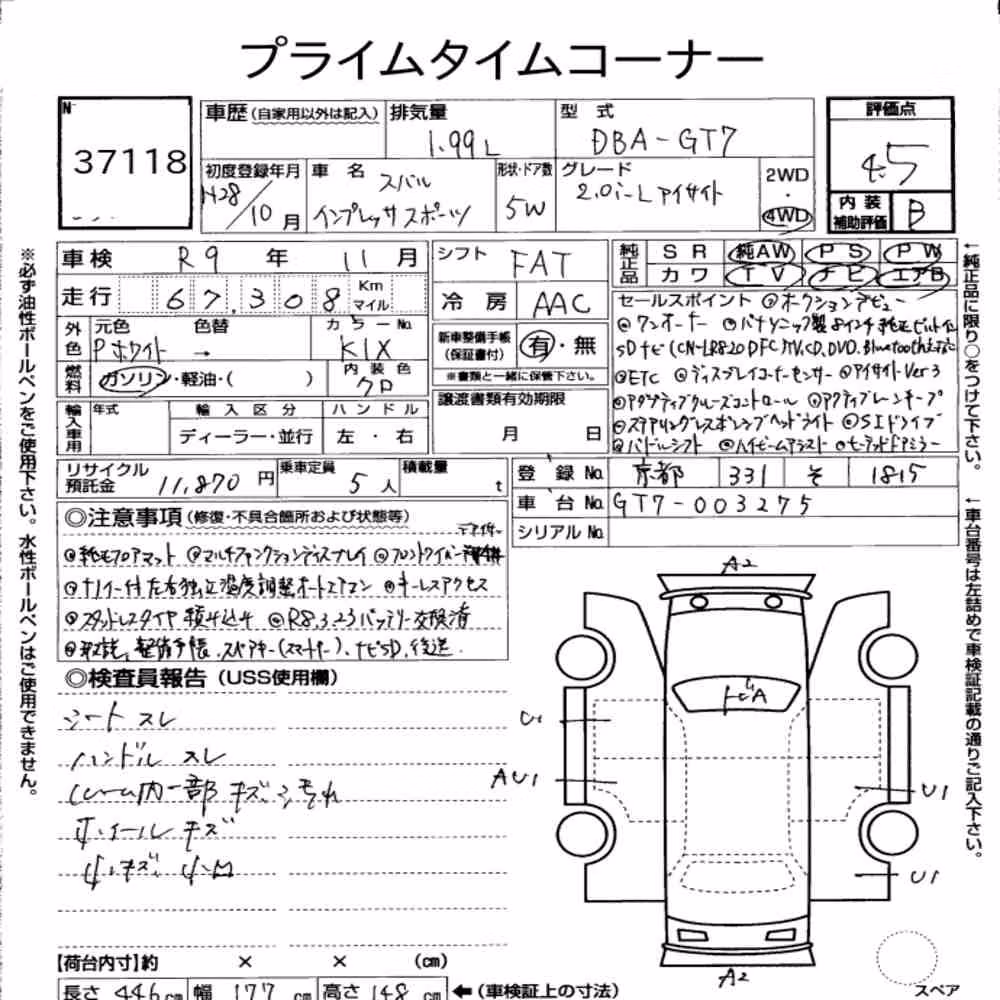 プライムタイムコーナー
No
37118
車歴 (自家用以外は記入)
排気量
1.99L
型式
DBA-GT7
評価点
4.5
内装
補助評価
B
初度登録年月
H28/10月
車名
スバル
インプレッサスポーツ
形状・ドア数
5W
グレード
2.0i-Lアイサイト
2WD
・
4WD
車検 R9年 11月
走行 67,308 Km
マイル
シフト FAT
冷房 AAC
純正品
SR 純AW PS PW
カワ TV ナビ エアB
外色
元色 色替 カラーNo.
Pホワイト → K1X
燃料
ガソリン・軽油・( )
内装色
クロ
新車整備手帳
(保証書付)
有・無
※書類と一緒に保管下さい。
譲渡書類有効期限
月 日
輸入車用
年式 輸入区分 ハンドル
ディーラー・並行 左・右
セールスポイント ◎オークションデビュー
◎ワンオーナー ◎パナソニック製8インチ純正ビルトイン
SDナビ(CN-LR820DFC)TV,CD,DVD,Bluetooth対応
◎ETC ◎ディスプレイコーナーセンサー ◎アイサイトVer3
◎アダプティブクルーズコントロール ◎アクティブレーンキープ
◎ステアリングレスポンシブヘッドライト ◎SIドライブ
◎パドルシフト ◎ハイビームアシスト
リサイクル
預託金
11,870円
乗車定員
5人
積載量
t
登録No. 京都 331 そ 1815
車台No. GT7-003275
シリアルNo.
◎注意事項 (修復・不具合箇所および状態等)
◎純正フロアマット ◎マルチファンクションディスプレイ ◎フロントワイパー
デアイサー
◎ナノイー付左右独立温度調整オートエアコン ◎キーレスアクセス
◎スタッドレスタイヤ積み込み ◎R8.3.23バッテリー交換済
◎取説、整備手帳、スペアキー(スマートキー)、ナビSD、後送
◎検査員報告 (USS使用欄)
シート スレ
ハンドル スレ
内一部 キズ、
ホイール キズ
小キズ、小凹
A2
U1
AU1
U1
U1
A2
スペア
【荷台内寸】約 × × (cm)
長さ 446cm 幅 177cm 高さ 148cm
←(車検証上の寸法)
※必ず油性ボールペンをご使用下さい。水性ボールペンはご使用できません。
←純正品に限り○をつけて下さい。
←車台番号は左詰めで車検証記載の通りご記入下さい。